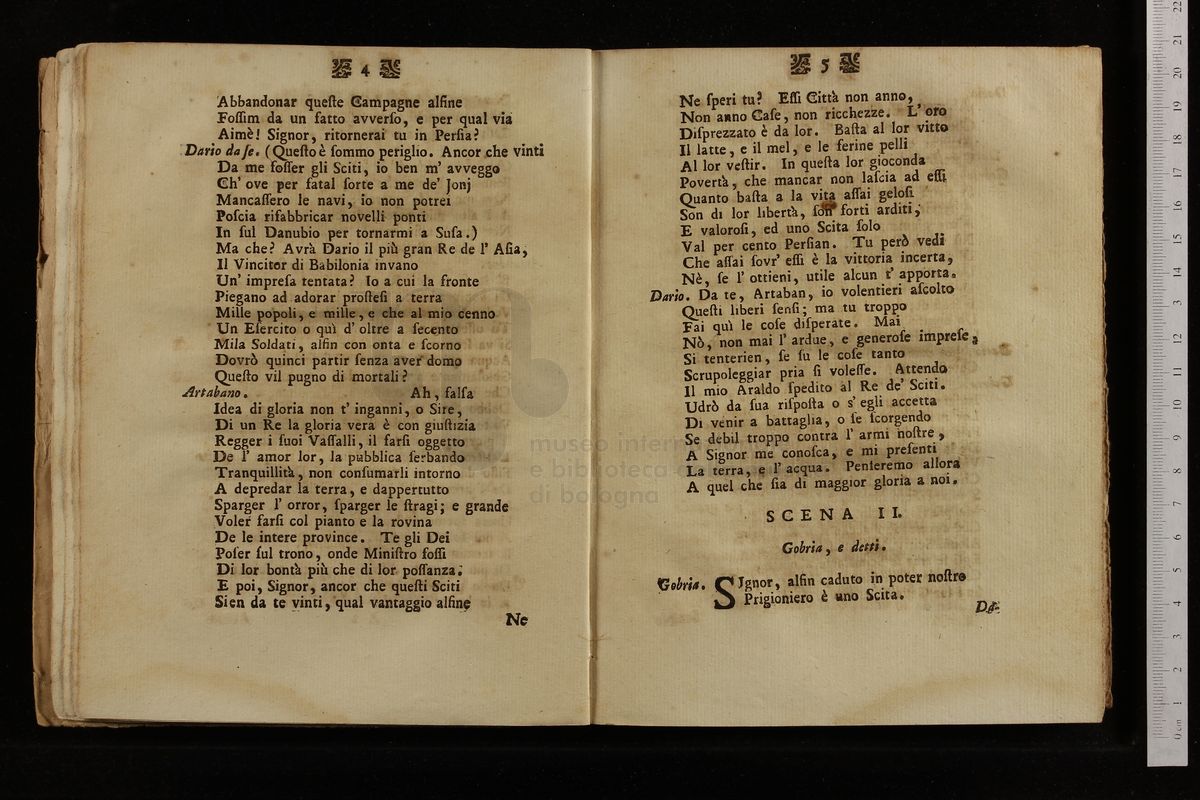 4
Abbandonar queſte Campagne alfine
Foſſim da un fatto avverſo, e per qual via
Aimè! Signor, ritornerai tu in Perſia?
Dario da ſe. (Queſto è ſommo periglio. Ancor che vinti
Da me foſſer gli Sciti, io ben m' avveggo
Ch' ove per fatal ſorte a me de' Jonj
Mancaſſero le navi, io non potrei
Poſcia rifabbricar novelli ponti
In ſul Danubio per tornarmi a Suſa.)
Ma che? Avrà Dario il più gran Re de l' Aſia,
Il Vincitor di Babilonia invano
Un' impreſa tentata? Io a cui la fronte
Piegano ad adorar proſteſi a terra
Mille popoli, e mille, e che al mio cenno
Un Eſercito o quì d' oltre a ſecento
Mila Soldati, alfin con onta e ſcorno
Dovrò quinci partir ſenza aver domo
Queſto vil pugno di mortali?
Artabano. Ah, falſa
Idea di gloria non t' inganni, o Sire,
Di un Re la gloria vera è con giuſtizia
Regger i ſuoi Vaſſalli, il farſi oggetto
De l' amor lor, la pubblica ſerbando
Tranquillità, non conſumarli intorno
A depredar la terra, e dappertutto
Sparger l' orror, ſparger le ſtragi; e grande
Voler farſi col pianto e la rovina
De le intere province. Te gli Dei
Poſer ſul trono, onde Miniſtro foſſi
Di lor bontà più che di lor poſſanza.
E poi, Signor, ancor che queſti Sciti
Sien da te vinti, qual vantaggio alfine
Ne
5
Ne ſperi tu? Eſſi Città non anno,
Non anno Caſe, non ricchezze. L' oro
Diſprezzato è da lor. Baſta al lor vitto
Il latte, e il mel, e le ferine pelli
Al lor veſtir. In queſta lor gioconda
Povertà, che mancar non laſcia ad eſſi
Quanto baſta a la vita aſſai geloſi
Son di lor libertà, ſon forti arditi,
E valoroſi, ed uno Scita ſolo
Val per cento Perſian. Tu però vedi
Che aſſai ſovr' eſſi è la vittoria incerta,
Nè, ſe l' ottieni, utile alcun t' apporta.
Dario. Da te, Artaban, io volentieri aſcolto
Queſti liberi ſenſi; ma tu troppo
Fai quì le coſe diſperate. Mai
Nò, non mai l' ardue, e generoſe impreſe,
Si tenterien, ſe ſu le coſe tanto
Scrupoleggiar pria ſi voleſſe. Attendo
Il mio Araldo ſpedito al Re de' Sciti.
Udrò da ſua riſpoſta o s' egli accetta
Di venir a battaglia, o ſe ſcorgendo
Se debil troppo contra l' armi noſtre,
A Signor me conoſca, e mi preſenti
La terra, e l' acqua. Penſeremo allora
A quel che ſia di maggior gloria a noi.
SCENA II.
Gobria, e detti.
Gobria. SIgnor, alfin caduto in poter noſtro
Prigioniero è uno Scita.
museo intern
e biblioteca
di bologna